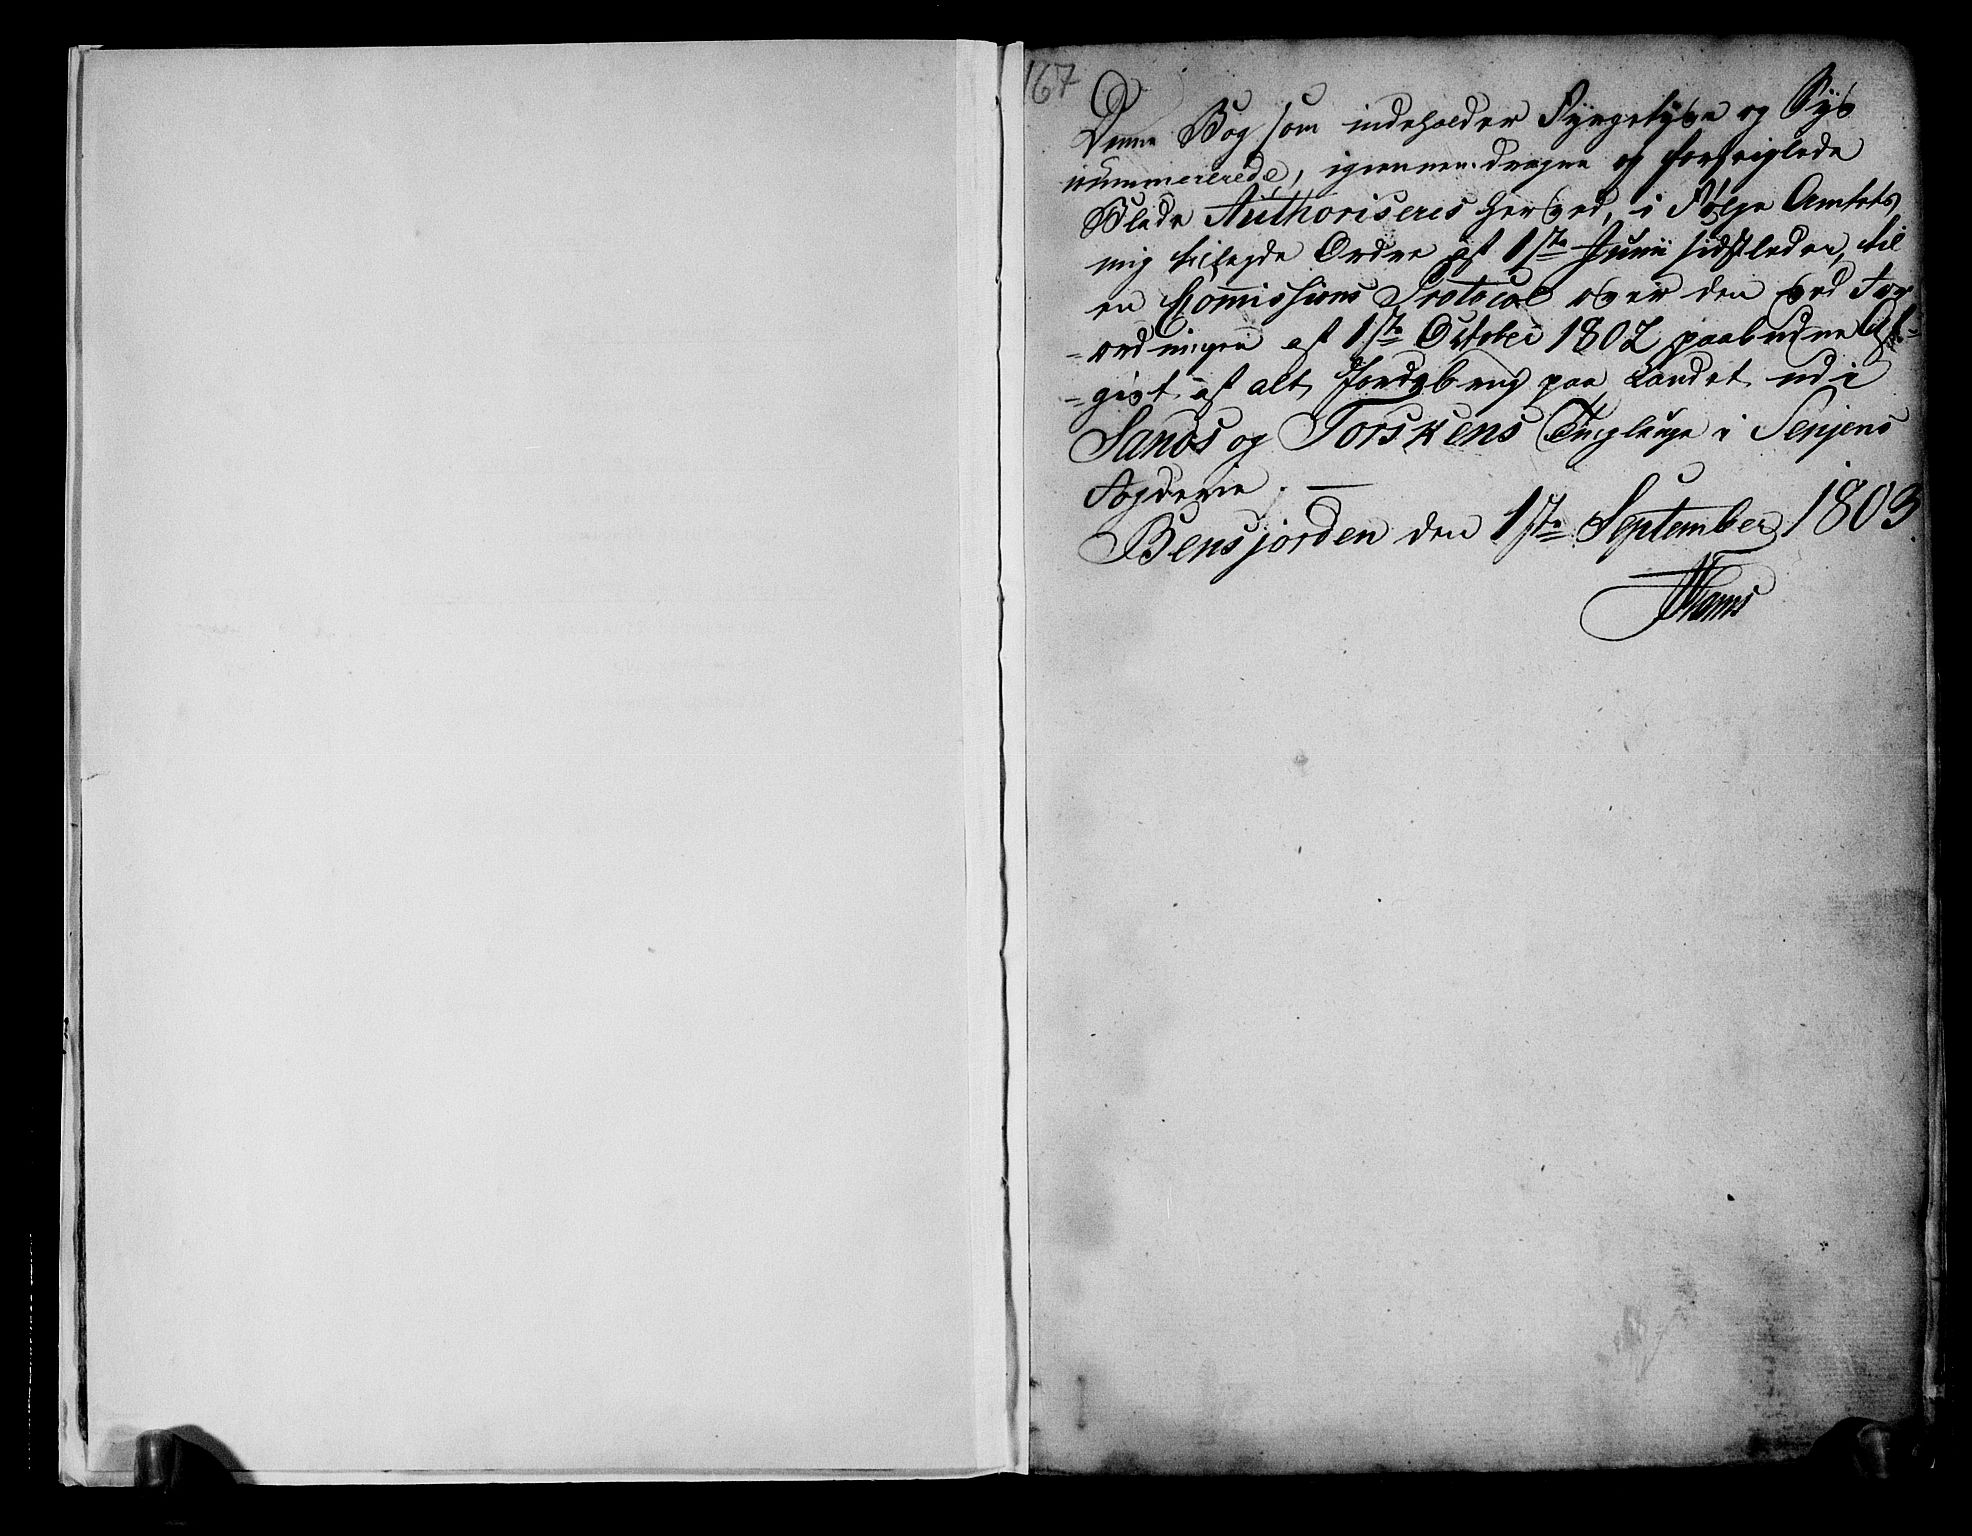 167
Denne Bog som indeholder Fyrgetyve og Syv
nummererede, igiennemdragne og forseiglede
Blade Authoriseres herved, i Følge Amtets
mig tillagde Ordre af 1ste Junii sidstleden, til
en Commissions Protocol over den ved For
-ordningen af 1ste October 1802 paabudne Af-
-givt af alt Jordebrug paa Landet udi
Sands og Torskens Tinglauge i Senjens
Fogderie. —
Bensjorden den 1ste September 1803.